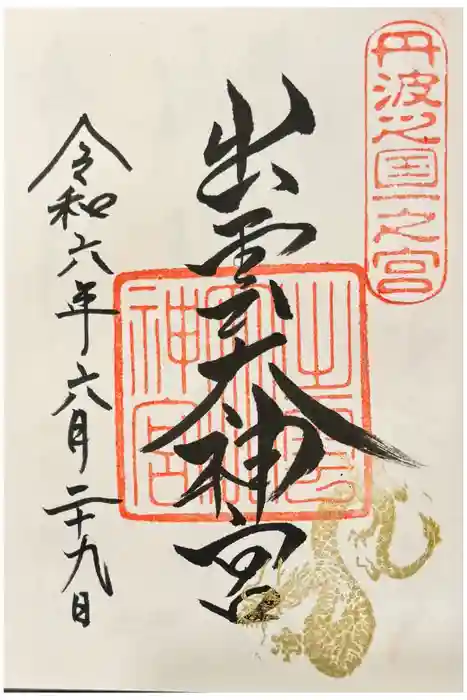 丹波之国一之宮
出雲大神宮
出雲大神宮
令和六年六月二十九日